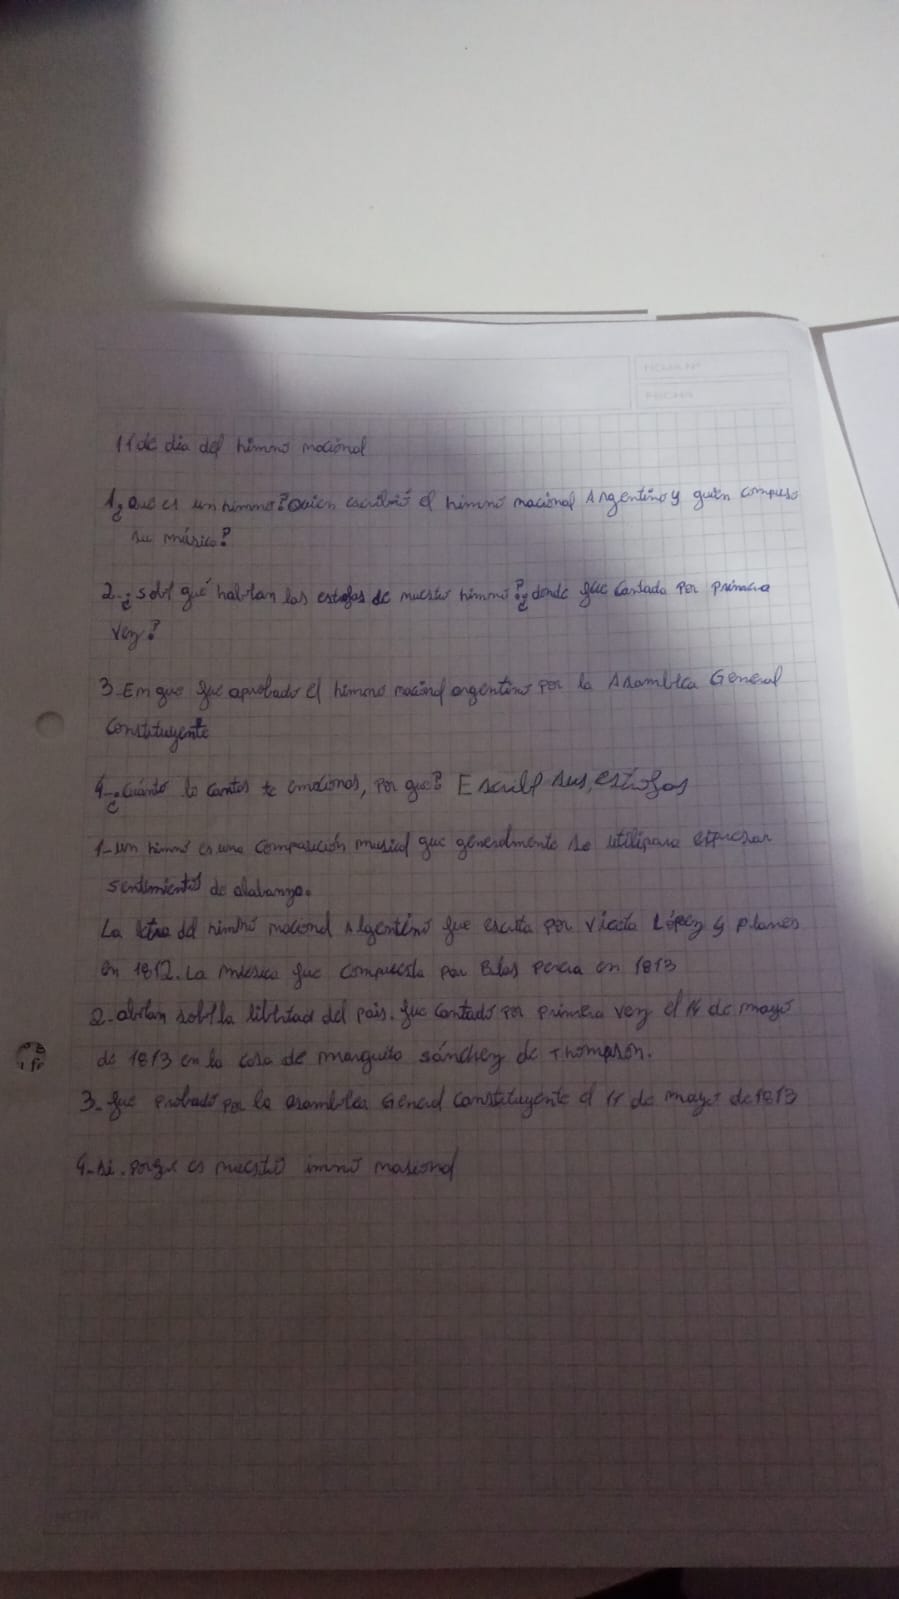 HOJA Nº
FECHA
11 de dia del himno nacional
1¿Que es un himno? Quien escribió el himno nacional Argentino y quién compuso
su música?
2-¿Sobre qué hablan las estofas de nuestro himno? ¿donde fue cantado por primera
vez?
3-En que fue aprobado el himno nacional argentino por la Asamblea General
Constituyente
4-¿Cuándo lo cantas te emocionas, por que? Escribe sus estrofas
1-un himno es una composición musical que generalmente se utilipara expresar
sentimientos de alabanza.
La letra del himno nacional Argentino fue escrita por López y planes
en 1812. La música fue compuesta por Blas en 1813
2-ablan sobre la libertad del pais. fue cantado por primera vez el 14 de mayo
de 1813 en la casa de marguita sánchez de Thompson.
3-fue probado por la asamblea General constituyente el 11 de mayo de 1813
4-si. porque es nuestro imno nasional